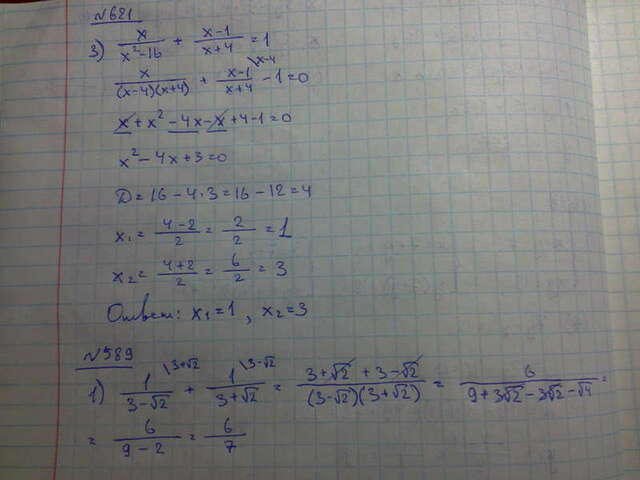 №681
3) x/(x²-16) + (x-1)/(x+4) = 1
x/((x-4)(x+4)) + (x-1)/(x+4) \x-4 - 1 = 0
x + x² - 4x - x + 4 - 1 = 0
x² - 4x + 3 = 0
D = 16 - 4·3 = 16 - 12 = 4
x₁ = (4-2)/2 = 2/2 = 1
x₂ = (4+2)/2 = 6/2 = 3
Ответ: x₁=1, x₂=3
№589
1) 1/(3-√2) \3+√2 + 1/(3+√2) \3-√2 = (3+√2+3-√2)/((3-√2)(3+√2)) = 6/(9+3√2-3√2-√4) =
= 6/(9-2) = 6/7